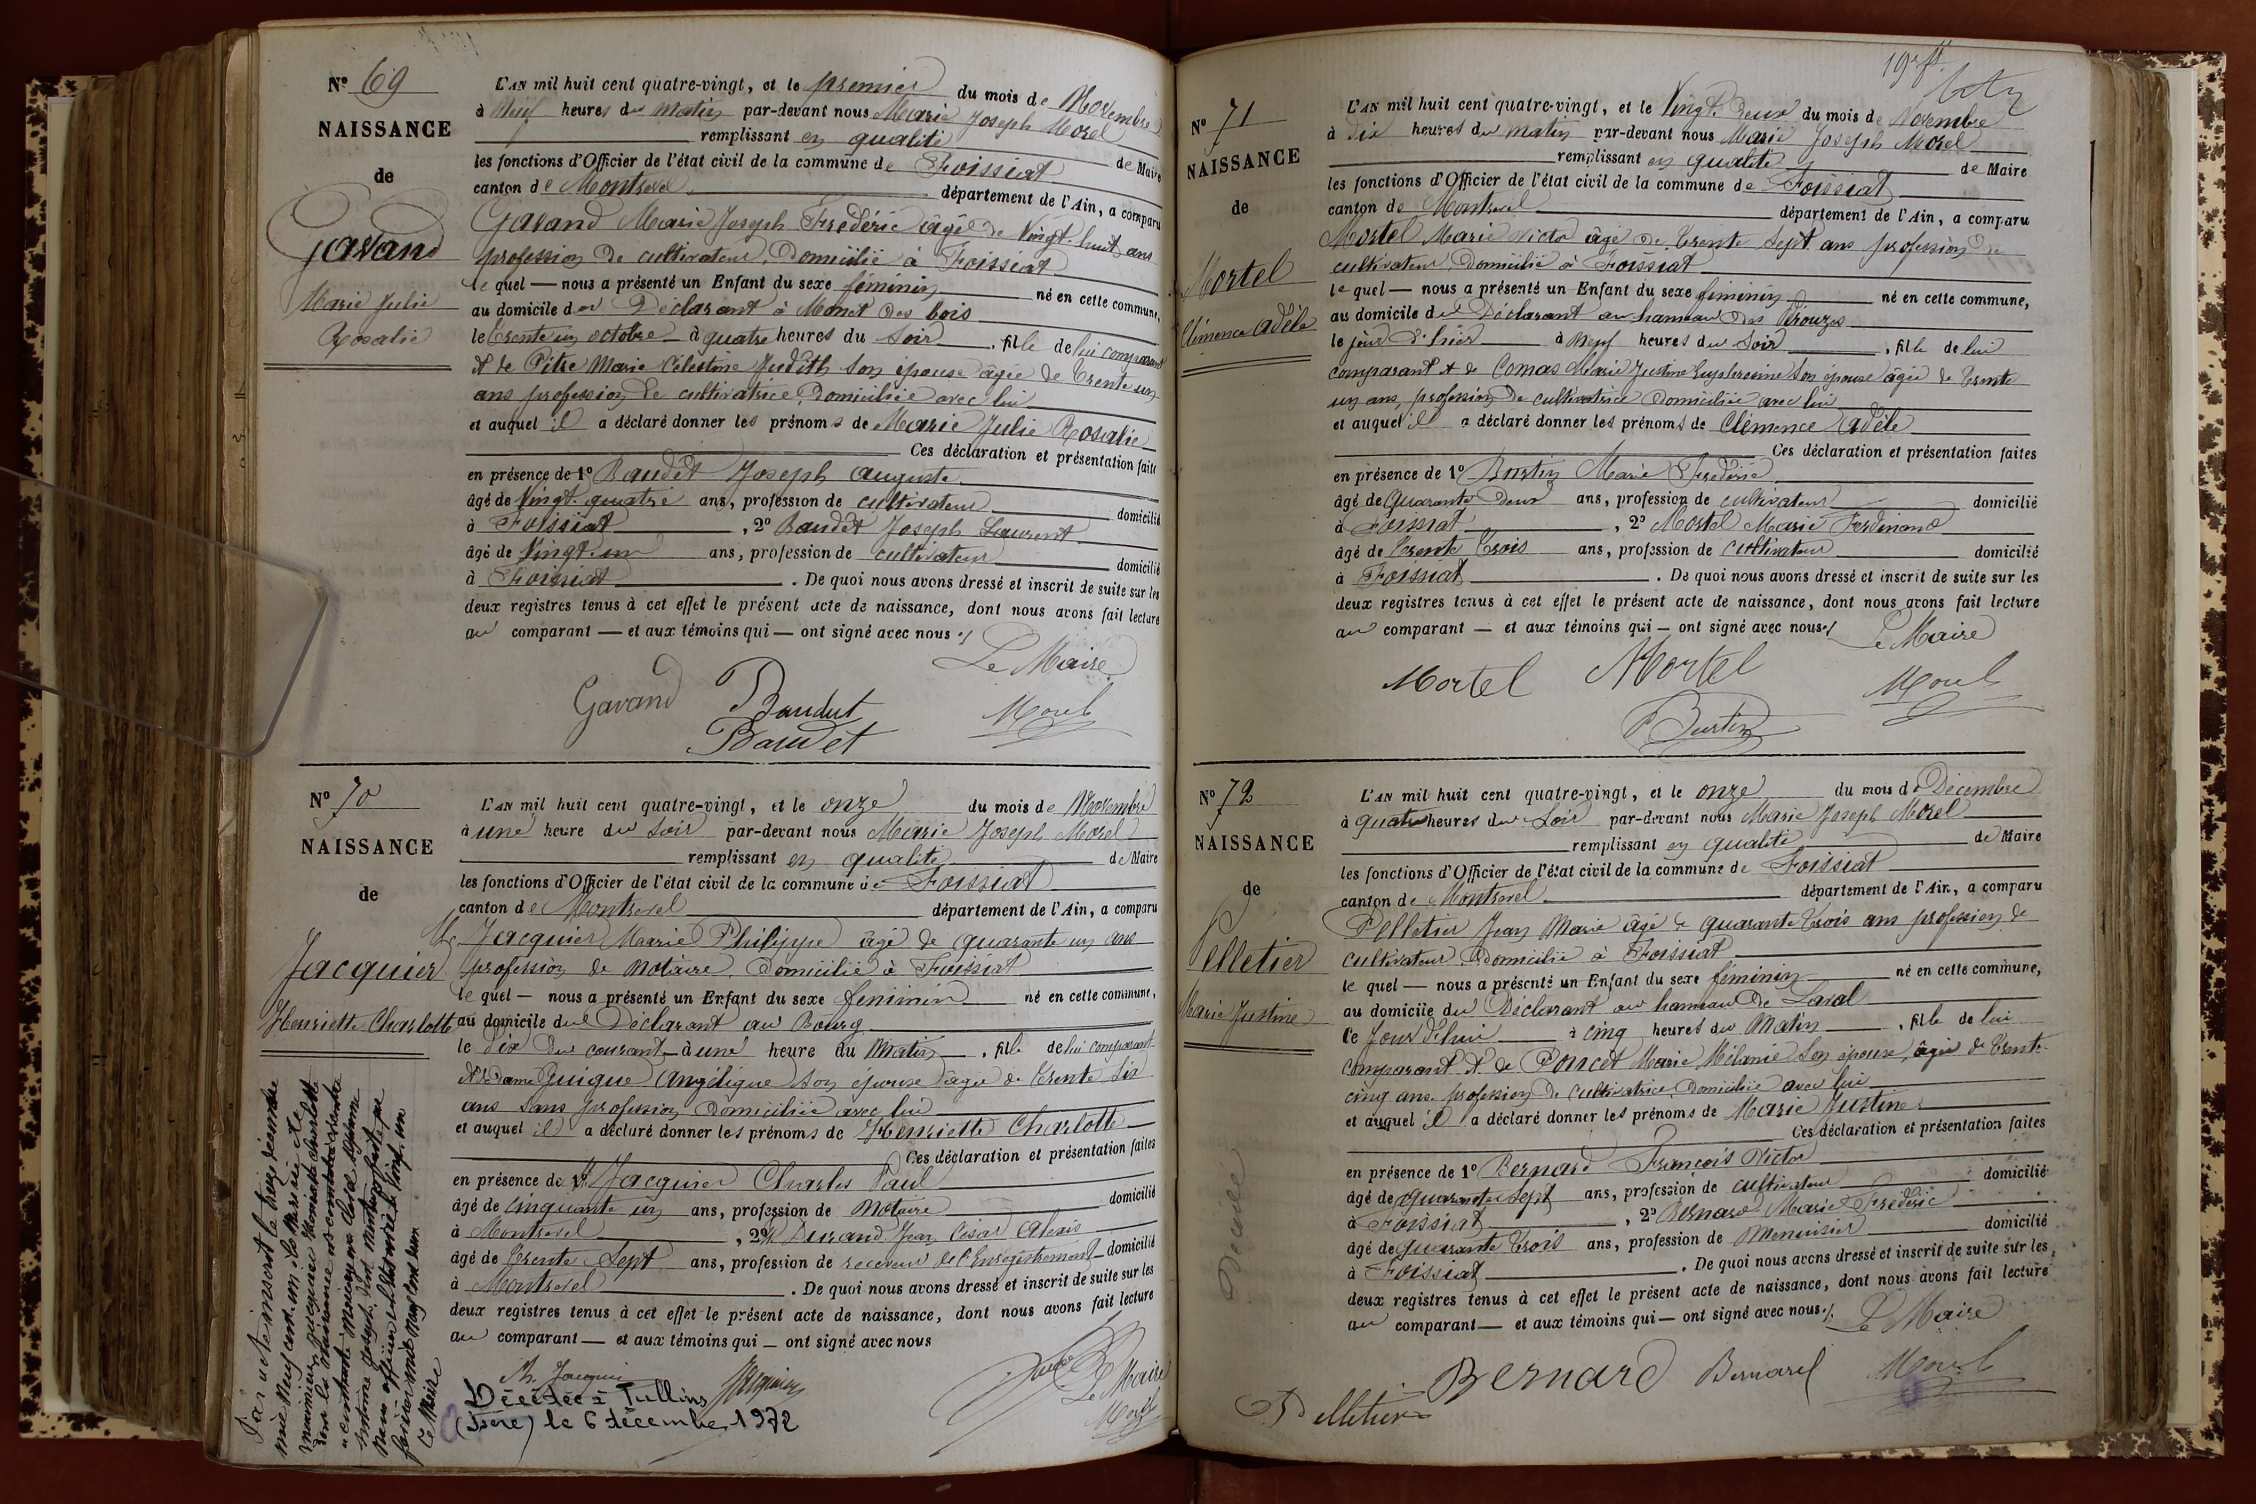 Nº 69
NAISSANCE
de
Gavand
Marie Julie
Rosalie
L'AN mil huit cent quatre-vingt, et le premier du mois de Novembre
à Neuf heures du matin par-devant nous Marie Joseph Morel
remplissant en qualité de Maire
les fonctions d'Officier de l'état civil de la commune de Foissiat
canton de Montrevel département de l'Ain, a comparu
Gavand Marie Joseph Frédéric âgé de Vingt-huit ans
profession de cultivateur, Domicilié à Foissiat
le quel — nous a présenté un Enfant du sexe féminin né en cette commune,
au domicile du Déclarant à Monet des bois
le trente un octobre à quatre heures du Soir, fille de lui comparant
& de Pitre Marie Célestine Judith son épouse âgée de trente un
ans profession de cultivatrice, Domiciliée avec lui
et auquel il a déclaré donner les prénoms de Marie Julie Rosalie
Ces déclaration et présentation faites
en présence de 1º Baudet Joseph Auguste
âgé de Vingt-quatre ans, profession de cultivateur domicilié
à Foissiat, 2º Baudet Joseph Laurent
âgé de Vingt-un ans, profession de cultivateur domicilié
à Foissiat. De quoi nous avons dressé et inscrit de suite sur les
deux registres tenus à cet effet le présent acte de naissance, dont nous avons fait lecture
au comparant — et aux témoins qui — ont signé avec nous
Le Maire
Gavand Baudet Morel
Baudet
Nº 70
NAISSANCE
de
Jacquier
Henriette Charlotte
L'AN mil huit cent quatre-vingt, et le onze du mois de Novembre
à une heure du Soir par-devant nous Marie Joseph Morel
remplissant en qualité de Maire
les fonctions d'Officier de l'état civil de la commune de Foissiat
canton de Montrevel département de l'Ain, a comparu
Mr Jacquier Marie Philippe âgé de quarante un ans
profession de Notaire, Domicilié à Foissiat
le quel — nous a présenté un Enfant du sexe feminin né en cette commune,
au domicile du Déclarant au Bourg
le dix du courant à une heure du Matin, fille de lui comparant
& de Dame Guigue Angélique son épouse âgée de trente six
ans sans profession Domiciliée avec lui
et auquel il a déclaré donner les prénoms de Henriette Charlotte
Ces déclaration et présentation faites
en présence de 1º Mr Jacquier Charles Paul
âgé de cinquante un ans, profession de Notaire domicilié
à Montrevel, 2º Mr Durand Jean César Alexis
âgé de trente sept ans, profession de receveur de l'Enregistrement domicilié
à Montrevel. De quoi nous avons dressé et inscrit de suite sur les
deux registres tenus à cet effet le présent acte de naissance, dont nous avons fait lecture
au comparant — et aux témoins qui — ont signé avec nous
Ph. Jacquier Jacquier
Le Maire
Morel
Décédée à Tullins
(Isère) le 6 décembre 1972
Par acte inscrit le treize décembre
mil neuf cent un
Jacquier Henriette Charlotte
dont la naissance est constatée
Le Maire
19e ft
Nº 71
NAISSANCE
de
Mortel
Clémence Adèle
L'AN mil huit cent quatre-vingt, et le Vingt-Deux du mois de Novembre
à dix heures du matin par-devant nous Marie Joseph Morel
remplissant en qualité de Maire
les fonctions d'Officier de l'état civil de la commune de Foissiat
canton de Montrevel département de l'Ain, a comparu
Mortel Marie Victor âgé de trente sept ans profession de
cultivateur, Domicilié à Foissiat
le quel — nous a présenté un Enfant du sexe féminin né en cette commune,
au domicile du Déclarant au hameau des
le jour d'hier à Neuf heures du Soir, fille de lui
comparant & de Comas Marie Justine Euphrosine son épouse âgée de trente
un ans, profession de cultivatrice Domiciliée avec lui
et auquel il a déclaré donner les prénoms de Clémence Adèle
Ces déclaration et présentation faites
en présence de 1º Burtin Marie Frédéric
âgé de Quarante Deux ans, profession de cultivateur domicilié
à Foissiat, 2º Mortel Marie Ferdinand
âgé de trente trois ans, profession de cultivateur domicilié
à Foissiat. De quoi nous avons dressé et inscrit de suite sur les
deux registres tenus à cet effet le présent acte de naissance, dont nous avons fait lecture
au comparant — et aux témoins qui — ont signé avec nous
Le Maire
Mortel Mortel Morel
Burtin
Nº 72
NAISSANCE
de
Pelletier
Marie Justine
Décédée
L'AN mil huit cent quatre-vingt, et le onze du mois de Décembre
à quatre heures du Soir par-devant nous Marie Joseph Morel
remplissant en qualité de Maire
les fonctions d'Officier de l'état civil de la commune de Foissiat
canton de Montrevel département de l'Ain, a comparu
Pelletier Jean Marie âgé de quarante trois ans profession de
cultivateur, Domicilié à Foissiat
le quel — nous a présenté un Enfant du sexe féminin né en cette commune,
au domicile du Déclarant au hameau de Laval
le Jour d'hui à cinq heures du Matin, fille de lui
comparant & de Poncet Marie Mélanie son épouse, âgée de trente-
cinq ans profession de cultivatrice, Domiciliée avec lui
et auquel il a déclaré donner les prénoms de Marie Justine
Ces déclaration et présentation faites
en présence de 1º Bernard François Victor
âgé de quarante sept ans, profession de cultivateur domicilié
à Foissiat, 2º Bernard Marie Frédéric
âgé de quarante trois ans, profession de Menuisier domicilié
à Foissiat. De quoi nous avons dressé et inscrit de suite sur les
deux registres tenus à cet effet le présent acte de naissance, dont nous avons fait lecture
au comparant — et aux témoins qui — ont signé avec nous
Le Maire
Bernard Bernard Morel
Pelletier